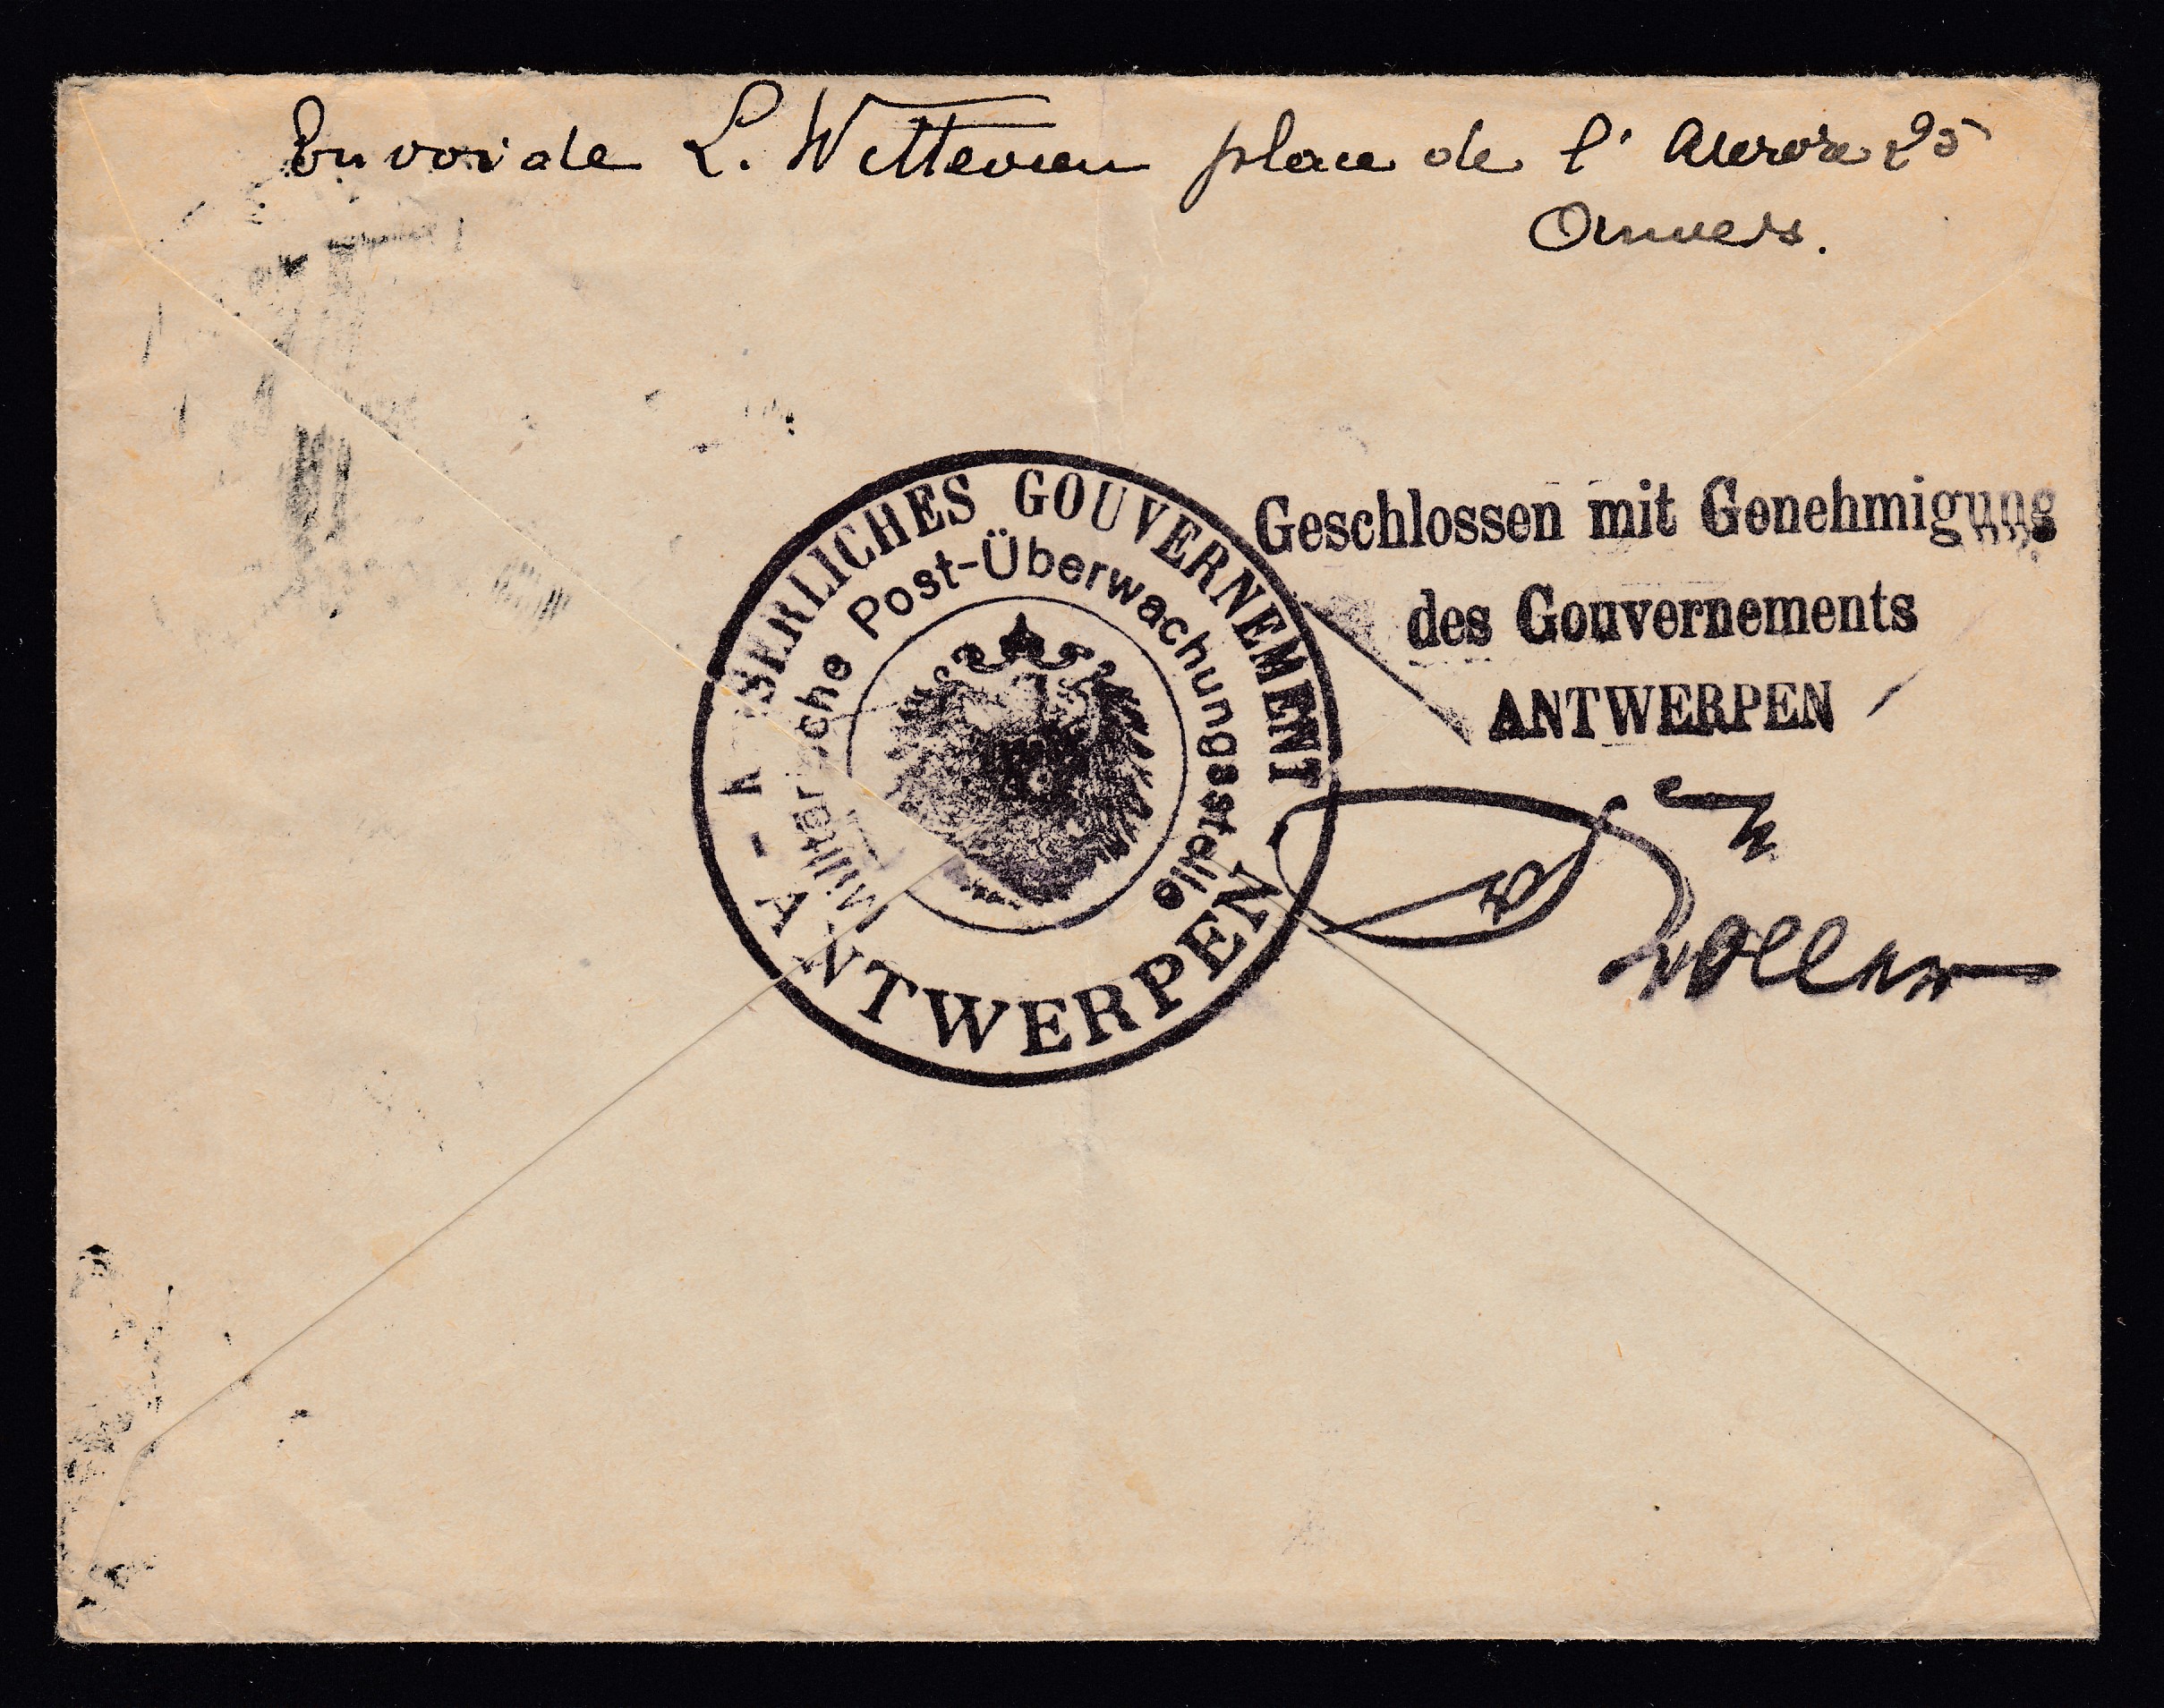 Envoi de L. Wittevien place de l'Aurore 25
Anvers.
KAISERLICHES GOUVERNEMENT
Militärische Post-Überwachungsstelle
- ANTWERPEN
Geschlossen mit Genehmigung
des Gouvernements
ANTWERPEN